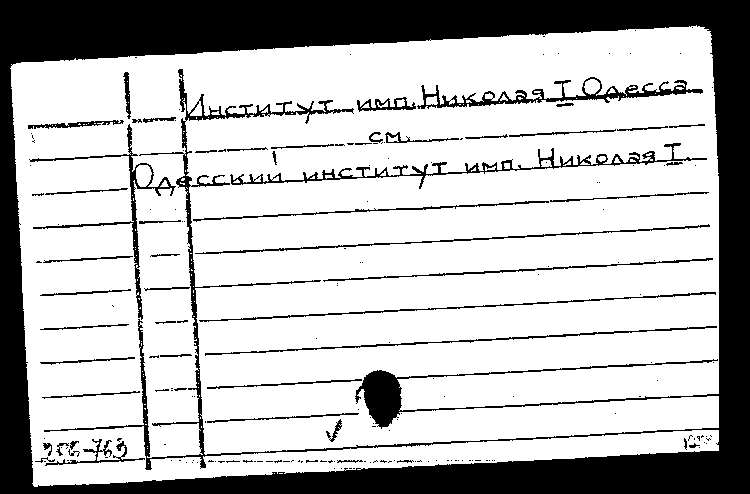 Институт имп. Николая I. Одесса
см.
Одесский институт имп. Николая I.